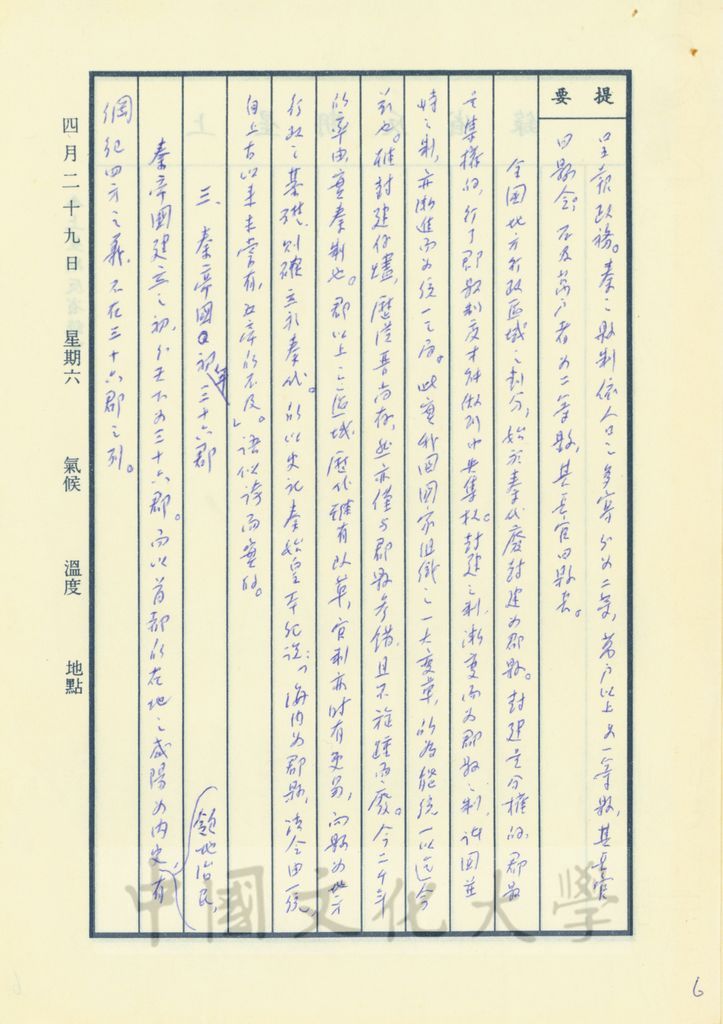 提要
呈報政務。秦之縣制依人口之多寡分為二等，萬戶以上為一等縣，其長官
曰縣令；不及萬戶者為二等縣，其長官曰縣長。
全國地方行政區域之劃分，始於秦代廢封建為郡縣。封建是分權的，郡縣
是集權的，行了郡縣制度才能做到中央集權。封建之制，漸變而為郡縣之制，諸國並
峙之制，亦漸進而為統一之局。此實我國國家組織之一大變革，所為能統一以迄今
茲也。雖封建仍蹟，歷漢晉尚存，然亦僅與郡縣參錯，且不旋踵而廢。今二千年
所率由，實秦制也。郡以上之區域，歷代雖有改革，官制亦時有更易，而縣為地方
行政之基礎，則確立於秦代。所以史記秦始皇本紀說：「海內為郡縣，法令由一統，
自上古以來未嘗有，五帝所不及。」語似誇而實的。
三、秦帝國初年三十六郡
秦帝國建立之初，分天下為三十六郡。而以首都所在地之咸陽為內史，有
領地治民，
綱紀四方之義，不在三十六郡之列。
四月二十九日 星期六 氣候 溫度 地點
中國文化大學
6